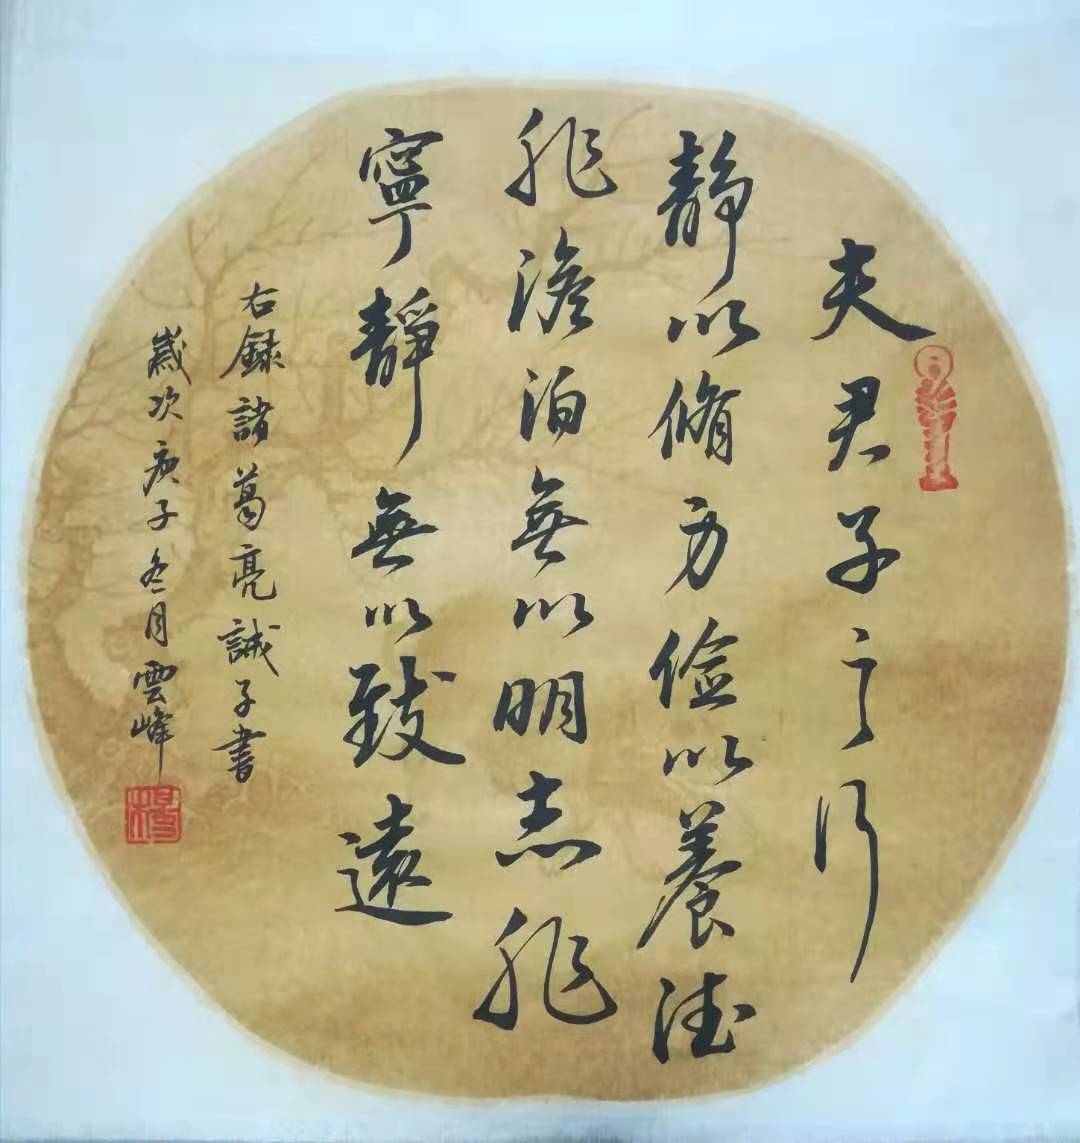 夫君子之行
靜以脩身儉以養德
非澹泊無以明志非
寧靜無以致遠
右録諸葛亮誡子書
歲次庚子冬月雲峰